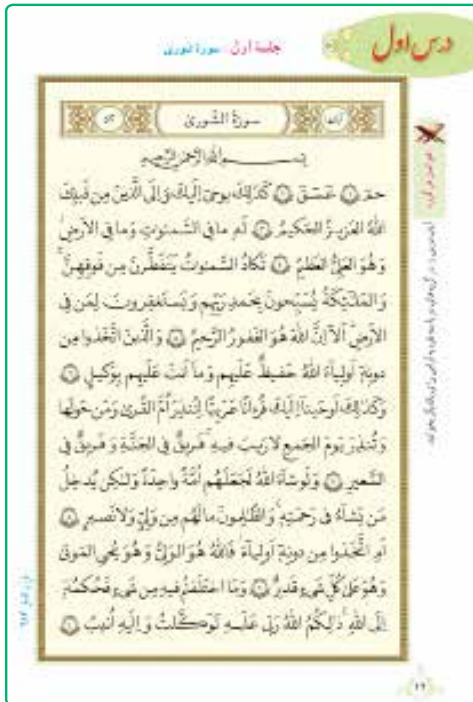 درس اول
جلسهٔ اول : سورهٔ شوری
سورة الشّورىٰ
بسم الله الرحمن الرحيم
حمٓ ۝ عٓسٓقٓ ۝ كَذٰلِكَ يوحىٓ اِلَيكَ وَ اِلَى الَّذينَ مِن قَبلِكَ
اللهُ العَزيزُ الحَكيمُ ۝ لَهُ ما فِى السَّمٰوٰتِ وَ ما فِى الاَرضِ
وَ هُوَ العَلِىُّ العَظيمُ ۝ تَكادُ السَّمٰوٰتُ يَتَفَطَّرنَ مِن فَوقِهِنَّ
وَ المَلٰٓئِكَةُ يُسَبِّحونَ بِحَمدِ رَبِّهِم وَ يَستَغفِرونَ لِمَن فِى
الاَرضِ اَلآ اِنَّ اللهَ هُوَ الغَفورُ الرَّحيمُ ۝ وَ الَّذينَ اتَّخَذوا مِن
دونِهٓ اَولِيآءَ اللهُ حَفيظٌ عَلَيهِم وَ مآ اَنتَ عَلَيهِم بِوَكيلٍ ۝
وَ كَذٰلِكَ اَوحَينآ اِلَيكَ قُرءانًا عَرَبِيًّا لِتُنذِرَ اُمَّ القُرىٰ وَ مَن حَولَها
وَ تُنذِرَ يَومَ الجَمعِ لا رَيبَ فيهِ فَريقٌ فِى الجَنَّةِ وَ فَريقٌ فِى
السَّعيرِ ۝ وَ لَو شآءَ اللهُ لَجَعَلَهُم اُمَّةً واحِدَةً وَ لٰكِن يُدخِلُ
مَن يَشآءُ فى رَحمَتِهٖ وَ الظّالِمونَ ما لَهُم مِن وَلِىٍّ وَ لا نَصيرٍ ۝
اَمِ اتَّخَذوا مِن دونِهٓ اَولِيآءَ فَاللهُ هُوَ الوَلِىُّ وَ هُوَ يُحىِ المَوتىٰ
وَ هُوَ عَلىٰ كُلِّ شَىءٍ قَديرٌ ۝ وَ مَا اختَلَفتُم فيهِ مِن شَىءٍ فَحُكمُهٓ
اِلَى اللهِ ذٰلِكُمُ اللهُ رَبّى عَلَيهِ تَوَكَّلتُ وَ اِلَيهِ اُنيبُ ۝